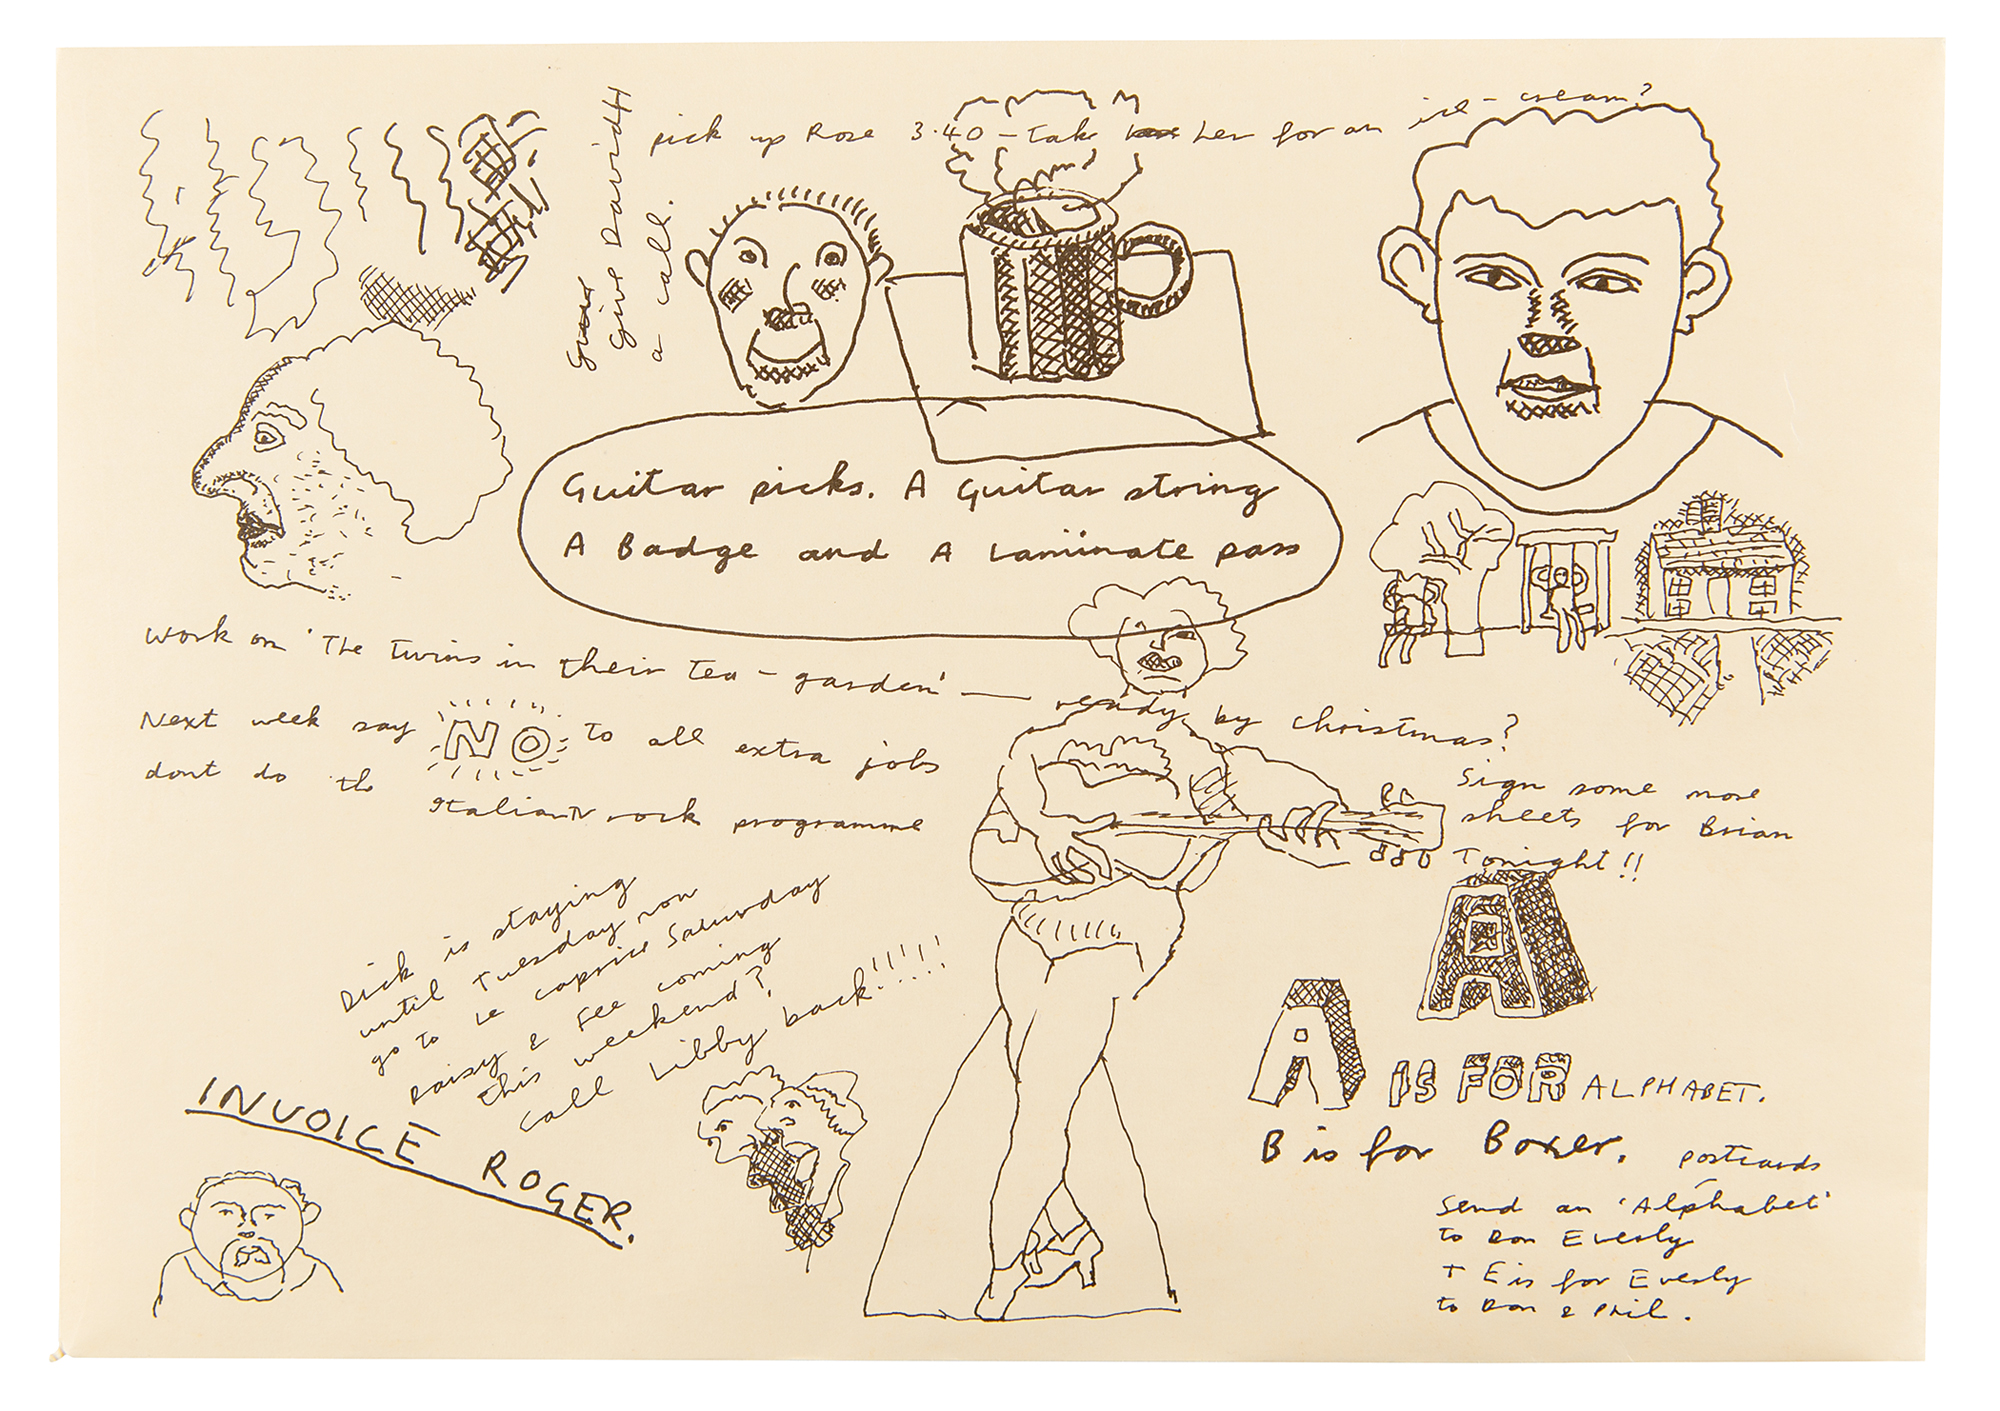 pick up Rose 3.40 - take her for an ice - cream?
Give David H
a call.
Guitar picks. A Guitar string
A Badge and A Laminate pass
Work on 'The Twins in their tea - garden' — ready by christmas?
Next week say NO to all extra jobs
dont do the Italian TV rock programme
Sign some more
sheets for Brian
Tonight!!
Dick is staying
until Tuesday
go to Le caprice Saturday
Daisy & Fee coming
this weekend?
Call Libby back!!!!!
INVOICE ROGER.
A
A IS FOR ALPHABET.
B is for Boxer.
postcards
Send an 'Alphabet'
to Don Everly
+ E is for Everly
to Don & Phil.